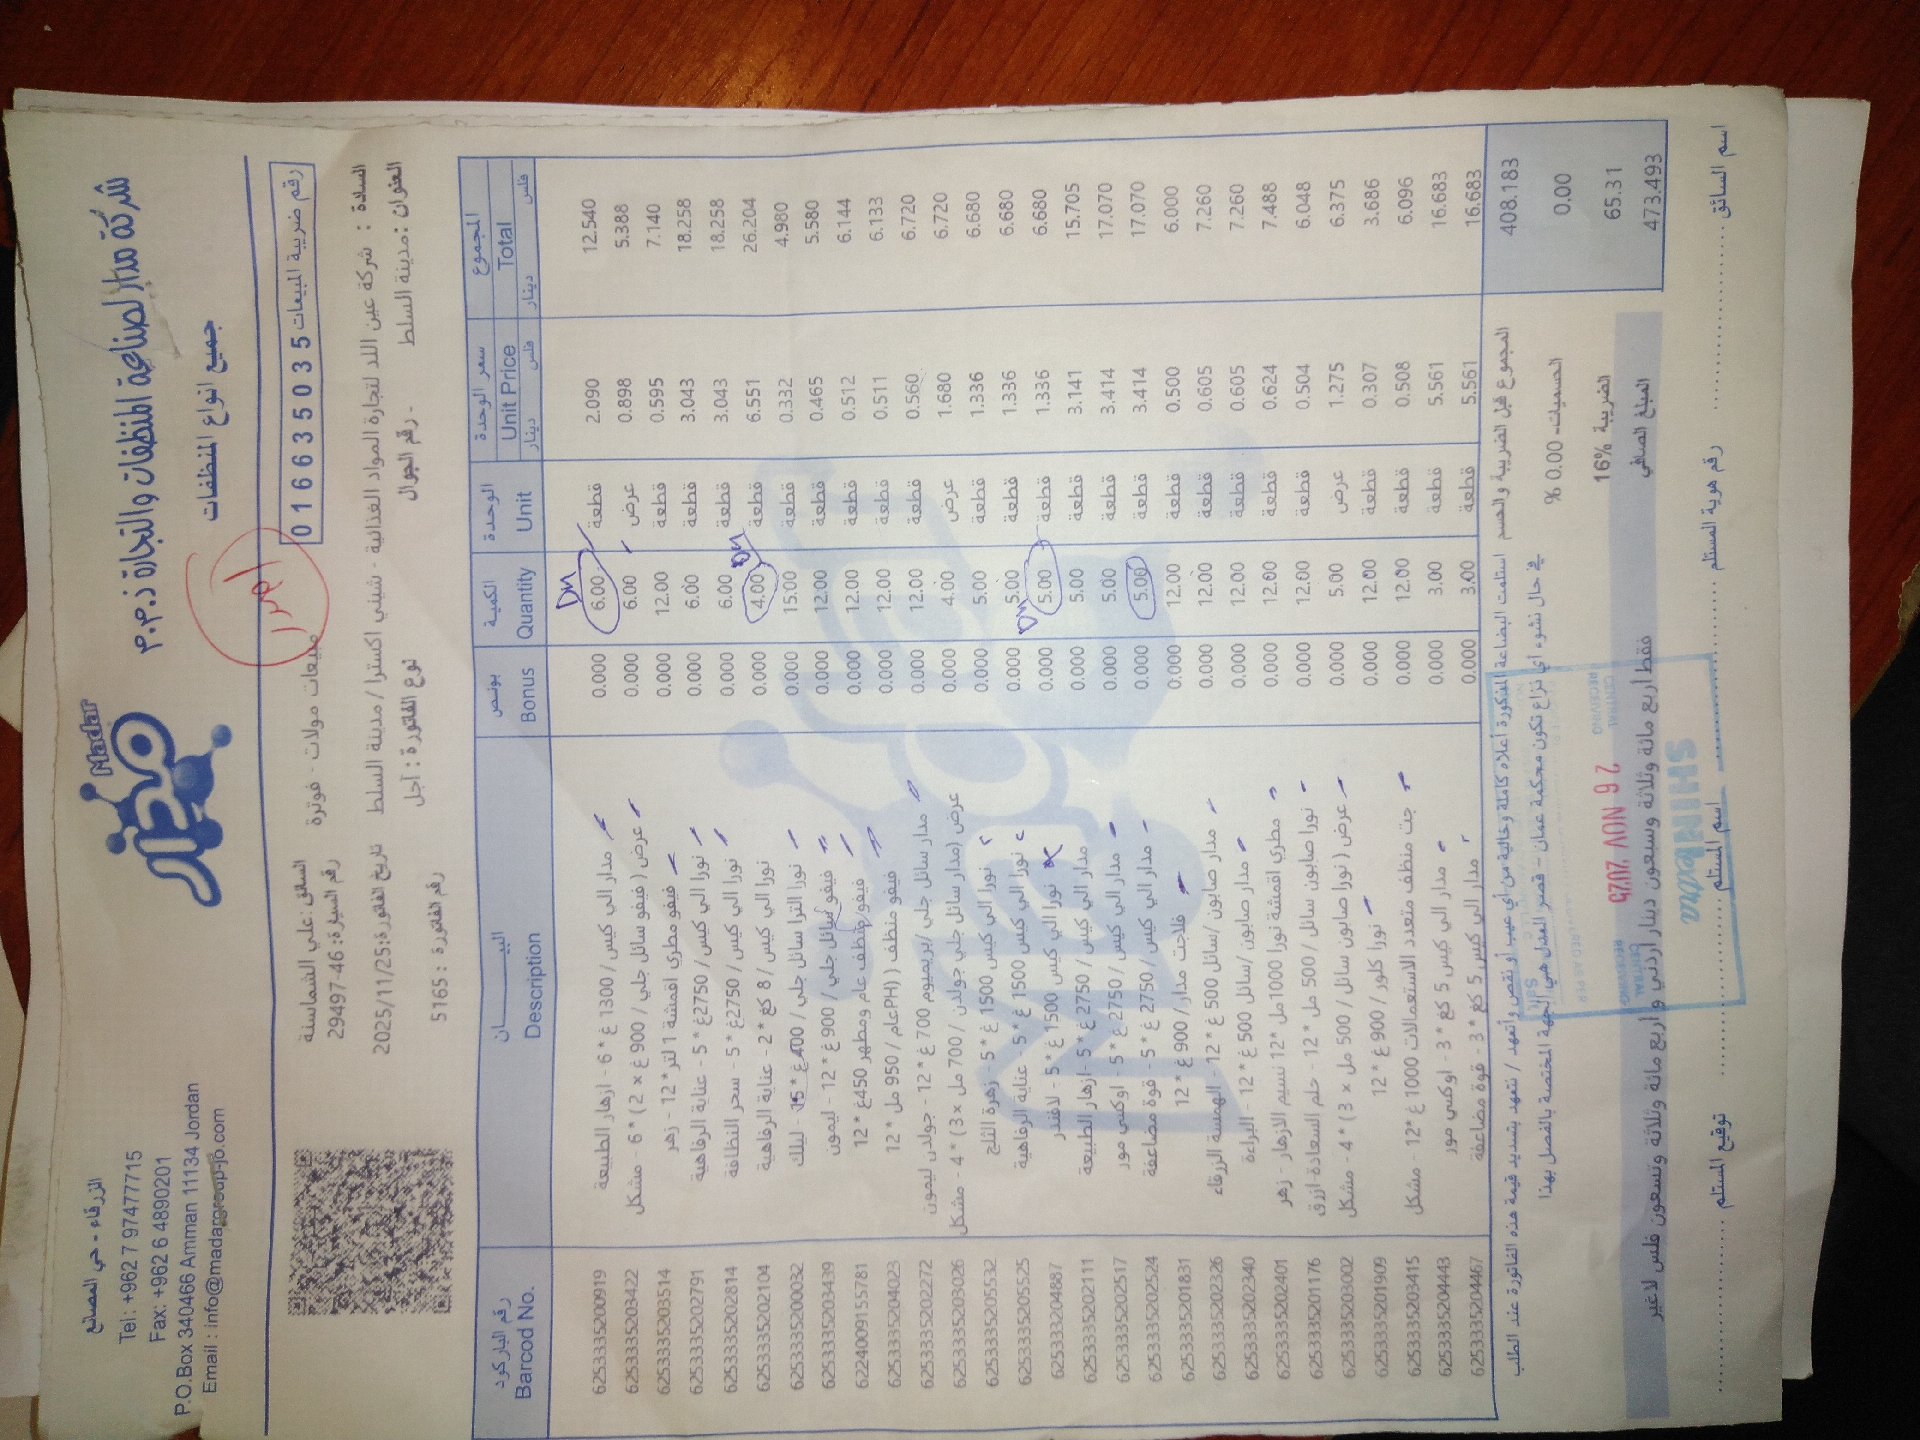 شركة مدار لصناعة المنظفات والتجارة ذ.م.م
جميع انواع المنظفات
Madar
مدار
الزرقاء - حي المصانع
Tel: +962 7 97477715
Fax: +962 6 4890201
P.O.Box 340466 Amman 11134 Jordan
Email : info@madargroup-jo.com
رقم ضريبة المبيعات 016635035
مبيعات مولات - فوترة
السائق :علي الشماسنة
رقم السيرة: 46-29497
السادة : شركة عين اللد لتجارة المواد الغذائية - شيني اكسترا / مدينة السلط
تاريخ الفاتورة:2025/11/25
العنوان :مدينة السلط - رقم الجوال
نوع الفاتورة : آجل
رقم الفاتورة : 5165
رقم الباركود البيـــــــــان بونص الكمية الوحدة سعر الوحدة المجموع
Barcod No. Description Bonus Quantity Unit Unit Price Total
دينار فلس دينار فلس
6253335200919 مدار الي كيس / 1300 غ * 6 - ازهار الطبيعة 0.000 6.00 قطعة 2.090 12.540
6253335203422 عرض ( فيفو سائل جلي / 900 غ x 2) * 6 - مشكل 0.000 6.00 عرض 0.898 5.388
6253335203514 فيفو مطري اقمشة 1 لتر * 12 - زهر 0.000 12.00 قطعة 0.595 7.140
6253335202791 نورا الي كيس / 2750غ * 5 - عناية الرفاهية 0.000 6.00 قطعة 3.043 18.258
6253335202814 نورا الي كيس / 2750غ * 5 - سحر النظافة 0.000 6.00 قطعة 3.043 18.258
6253335202104 نورا الي كيس / 8 كغ * 2 - عناية الرفاهية 0.000 4.00 قطعة 6.551 26.204
6253335200032 نورا الترا سائل جلي / 400 غ * 15 - ليلك 0.000 15.00 قطعة 0.332 4.980
6253335203439 فيفو سائل جلي / 900 غ * 12 - ليمون 0.000 12.00 قطعة 0.465 5.580
6224009155781 فيفو منظف عام ومطهر 450غ * 12 0.000 12.00 قطعة 0.512 6.144
6253335204023 فيفو منظف ((PHعام / 950 مل * 12 0.000 12.00 قطعة 0.511 6.133
6253335202272 مدار سائل جلي /بريميوم 700 غ * 12 - جولدن ليمون 0.000 12.00 قطعة 0.560 6.720
6253335203026 عرض (مدار سائل جلي جولدن / 700 مل x 3) * 4 - مشكل 0.000 4.00 عرض 1.680 6.720
6253335205532 نورا الي كيس 1500 غ * 5 - زهرة الثلج 0.000 5.00 قطعة 1.336 6.680
6253335205525 نورا الي كيس 1500 غ * 5 - عناية الرفاهية 0.000 5.00 قطعة 1.336 6.680
6253335204887 نورا الي كيس 1500 غ * 5 - لافندر 0.000 5.00 قطعة 1.336 6.680
6253335202111 مدار الي كيس / 2750 غ * 5 - ازهار الطبيعة 0.000 5.00 قطعة 3.141 15.705
6253335202517 مدار الي كيس / 2750 غ * 5 - اوكسي مور 0.000 5.00 قطعة 3.414 17.070
6253335202524 مدار الي كيس / 2750 غ * 5 - قوة مضاعفة 0.000 5.00 قطعة 3.414 17.070
6253335201831 فلاجت مدار / 900 غ * 12 0.000 12.00 قطعة 0.500 6.000
6253335202326 مدار صابون /سائل 500 غ * 12 - الهمسة الزرقاء 0.000 12.00 قطعة 0.605 7.260
6253335202340 مدار صابون /سائل 500 غ * 12 - البراءة 0.000 12.00 قطعة 0.605 7.260
6253335202401 مطري اقمشة نورا 1000 مل *12 نسيم الازهار - زهر 0.000 12.00 قطعة 0.624 7.488
6253335201176 نورا صابون سائل / 500 مل * 12 - حلم السعادة ازرق 0.000 12.00 قطعة 0.504 6.048
6253335203002 عرض ( نورا صابون سائل / 500 مل x 3) * 4 - مشكل 0.000 5.00 عرض 1.275 6.375
6253335201909 نورا كلور / 900 غ * 12 0.000 12.00 قطعة 0.307 3.686
6253335203415 جت منظف متعدد الاستعمالات 1000 غ *12 - مشكل 0.000 12.00 قطعة 0.508 6.096
6253335204443 مدار الي كيس 5 كغ * 3 - اوكسي مور 0.000 3.00 قطعة 5.561 16.683
6253335204467 مدار الي كيس 5 كغ * 3 - قوة مضاعفة 0.000 3.00 قطعة 5.561 16.683
استلمت البضاعة المذكورة أعلاه كاملة وخالية من أي عيب أو نقص وأتعهد / نتعهد بتسديد قيمة هذه الفاتورة عند الطلب
في حال نشوء اي نزاع تكون محكمة عمان - قصر العدل هي الجهة المختصة بالفصل بهذا
المجموع قبل الضريبة والخصم 408.183
الخصميات- 0.00 % 0.00
الضريبة 16% 65.31
المبلغ الصافي 473.493
فقط اربع مائة وثلاثة وسبعون دينار اردني و اربع مائة وثلاثة وتسعون فلس لاغير
CENTRAL
RECEIVING
26 NOV 2025
SHINI extra
اسم السائق .......... رقم هوية المستلم .......... اسم المستلم .......... توقيع المستلم ..........